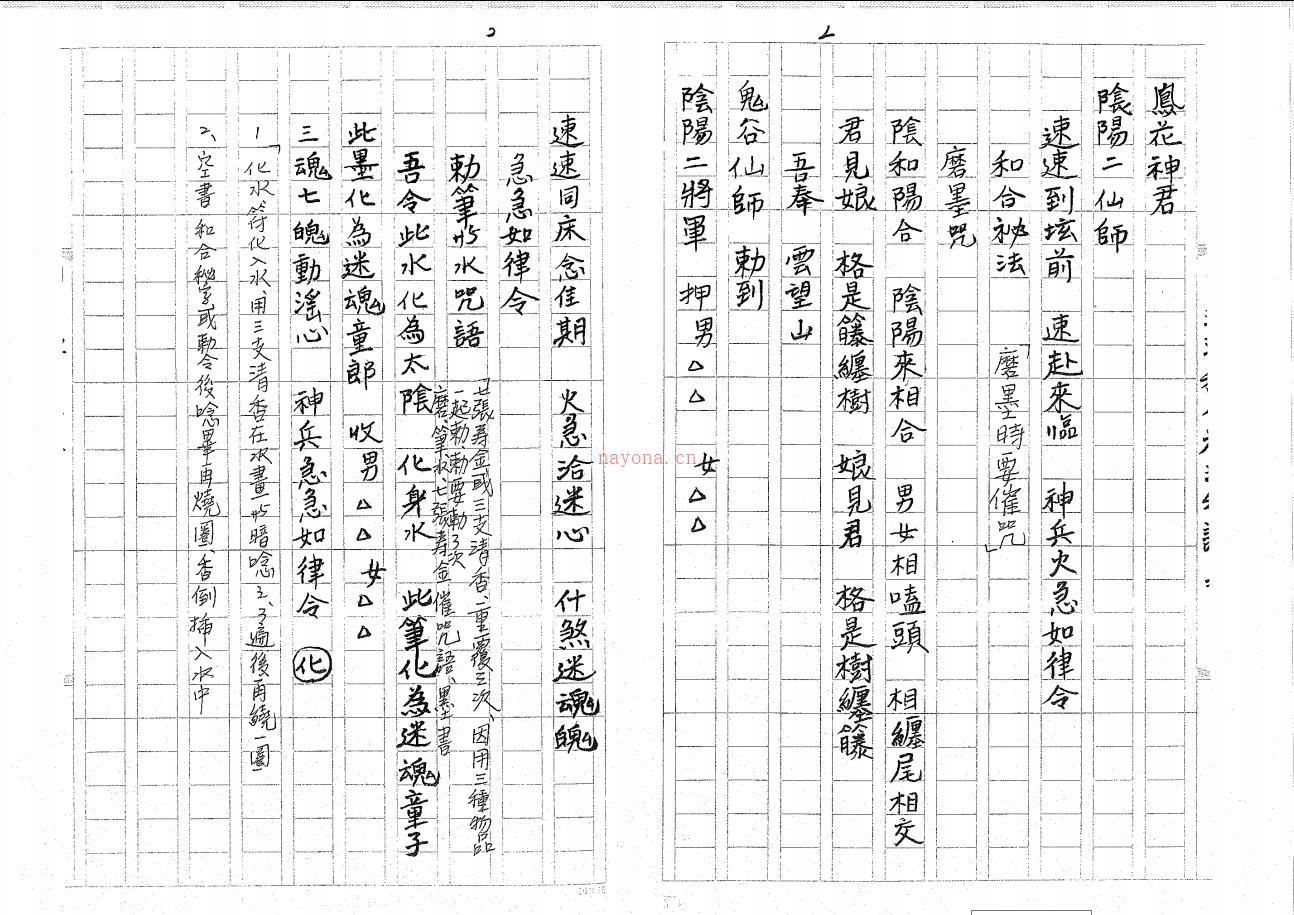 鳳花神君
陰陽二仙師
速速到坛前 速赴來臨 神兵火急如律令
和合祕法
磨墨咒 「磨墨時要催咒」
陰和陽合 陰陽來相合 男女相嗑頭 相纏尾相交
君見娘 格是籐纏樹 娘見君 格是樹纏籐
吾奉 雲望山
鬼谷仙師 勅到
陰陽二將軍 押男△△ 女△△
速速同床念佳期 火急洽迷心 什煞迷魂魄
急急如律令
勅筆 水咒語
「七張寿金或三支清香、重覆三次、因用三種物品
一起勅、勅要勅3次
磨筆水、七張壽金催咒語、墨書
吾令此水化為太陰 化身水 此筆化為迷魂童子
此墨化為迷魂童郎 收男△△ 女△△
三魂七魄動滛心 神兵急急如律令 化
1「化水符化入水、用三支清香在水畫 暗唸 3遍後再繞一圈」
2、空書 和合秘字或勅令後唸畢再燒圈、香倒插入水中
nayona.cn